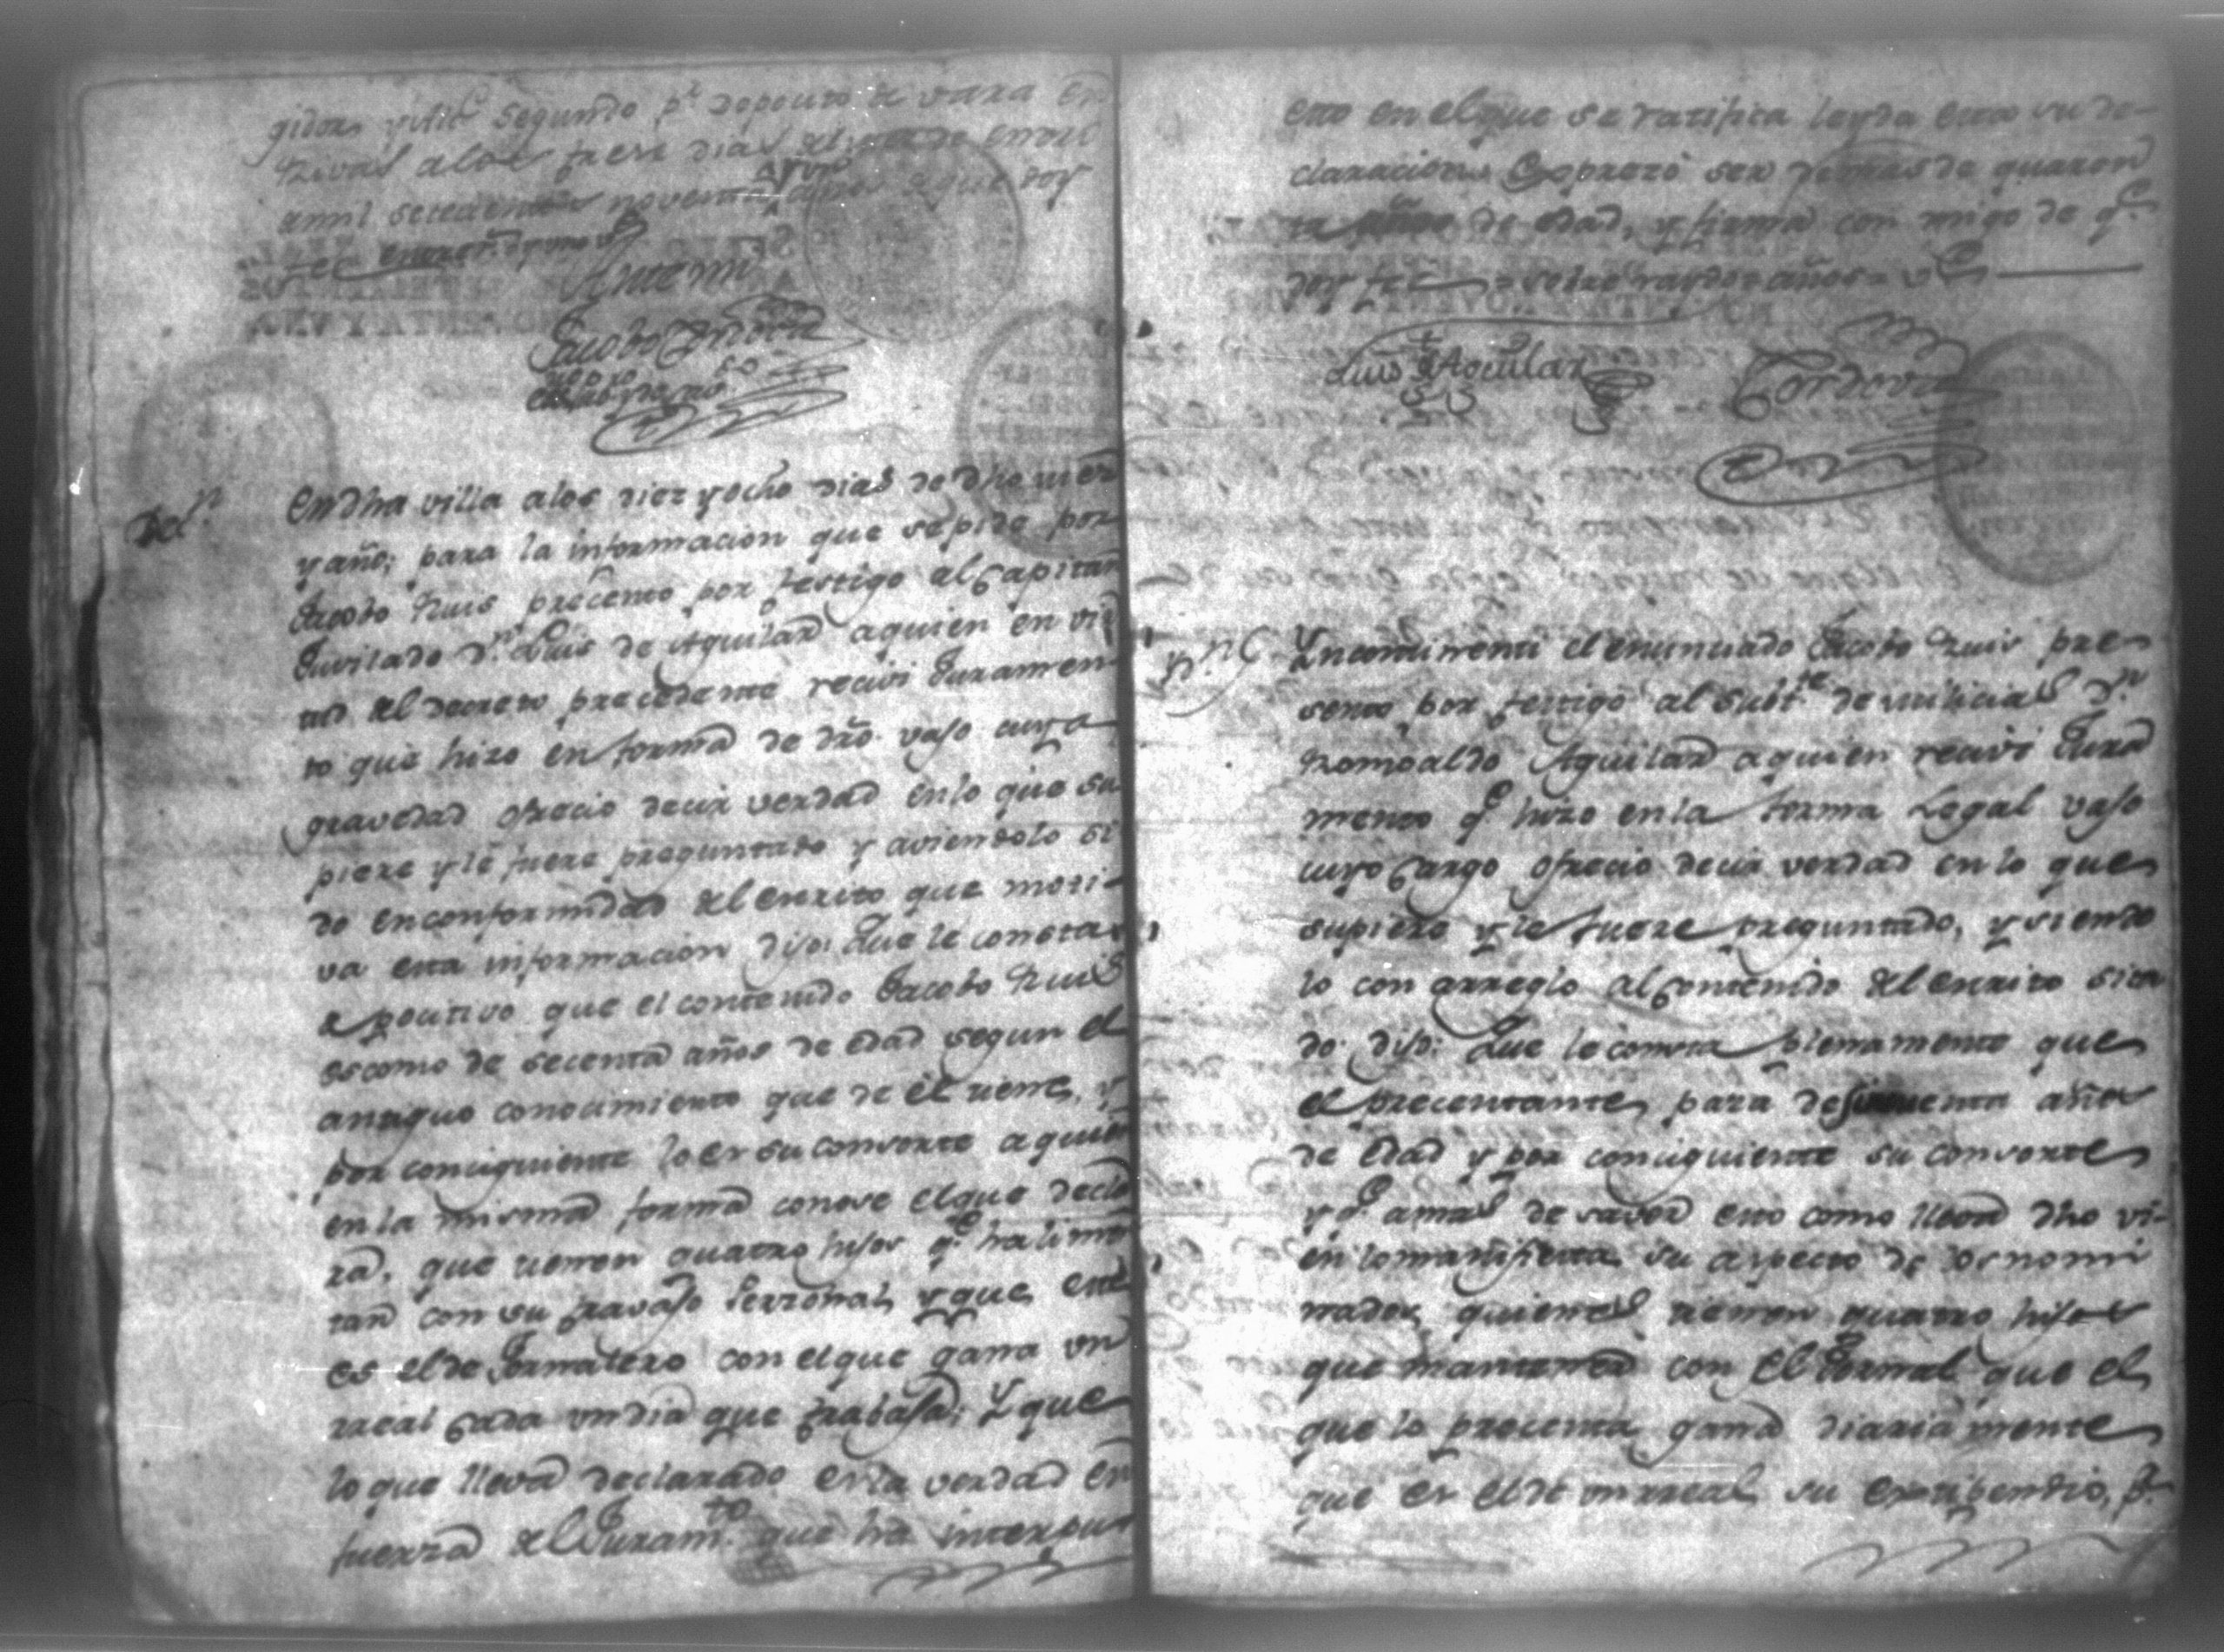 gidor y Alc.e segundo p.r deposito de vara en
Rivas a los trese dias del mes de enero
a mil setecientos noventa y un años de que doy
fee
Antemi
Jacobo Cordova
es.no
Del.n
En dha villa a los diez y ocho dias de dho mes
y año; para la informacion que se pide por
Jacobo Ruis precento por testigo al Capitan
Juvilado d.n Luis de Aguilar a quien en vir
tud del decreto precedente recivi Juramen-
to que hizo en forma de dro. vajo cuya
gravedad ofrecio decir verdad en lo que su
piere y le fuere preguntado y aviendolo si
do en conformidad del escrito que moti-
va esta informacion dijo: Que le consta
de pocitivo que el contenido Jacobo Ruis
es como de secenta años de edad segun el
antiguo conocimiento que de èl tiene, y
por conciguiente lo es su convorte a quien
en la misma forma conose el que decla
ra, que tienen quatro hijos q.e
tan con su travajo Perzonal, y que este
es el de Jornalero con el que gana un
rreal cada un dia que trabaja; Y que
lo que lleva declarado es la verdad en
fuerza del Juram.to que ha interpu-
esto en el que se ratifica leyda esta su de-
claracion. Exprezó ser de mas de quaren
ta años de edad, y firma con migo de q.e
doy fee = sobre raydo = años = v.e
Luis de Aguilar
Cordova
Yncontinenti el enunciado Jacobo Ruis pre-
sento por testigo al Subt.te de milicias d.n
Romoaldo Aguilar a quien recivi Jura
mento q.e hizo en la forma Legal vajo
cuyo Cargo ofrecio decir verdad en lo que
supiere y le fuere preguntado, y siendo
lo con arreglo al Contenido del escrito cita
do dijo: Que le consta plenamente que
el precentante, para de años
de edad y por conciguiente su convorte
y q.e a mas de saver esto como lleva dho vi-
en lo manifiesta su aspecto de los nomi
nados, quienes tienen quatro hijos
que mantener con el Jornal que el
que lo precenta gana diariamente
que es el de un rreal su estipendio, p.r